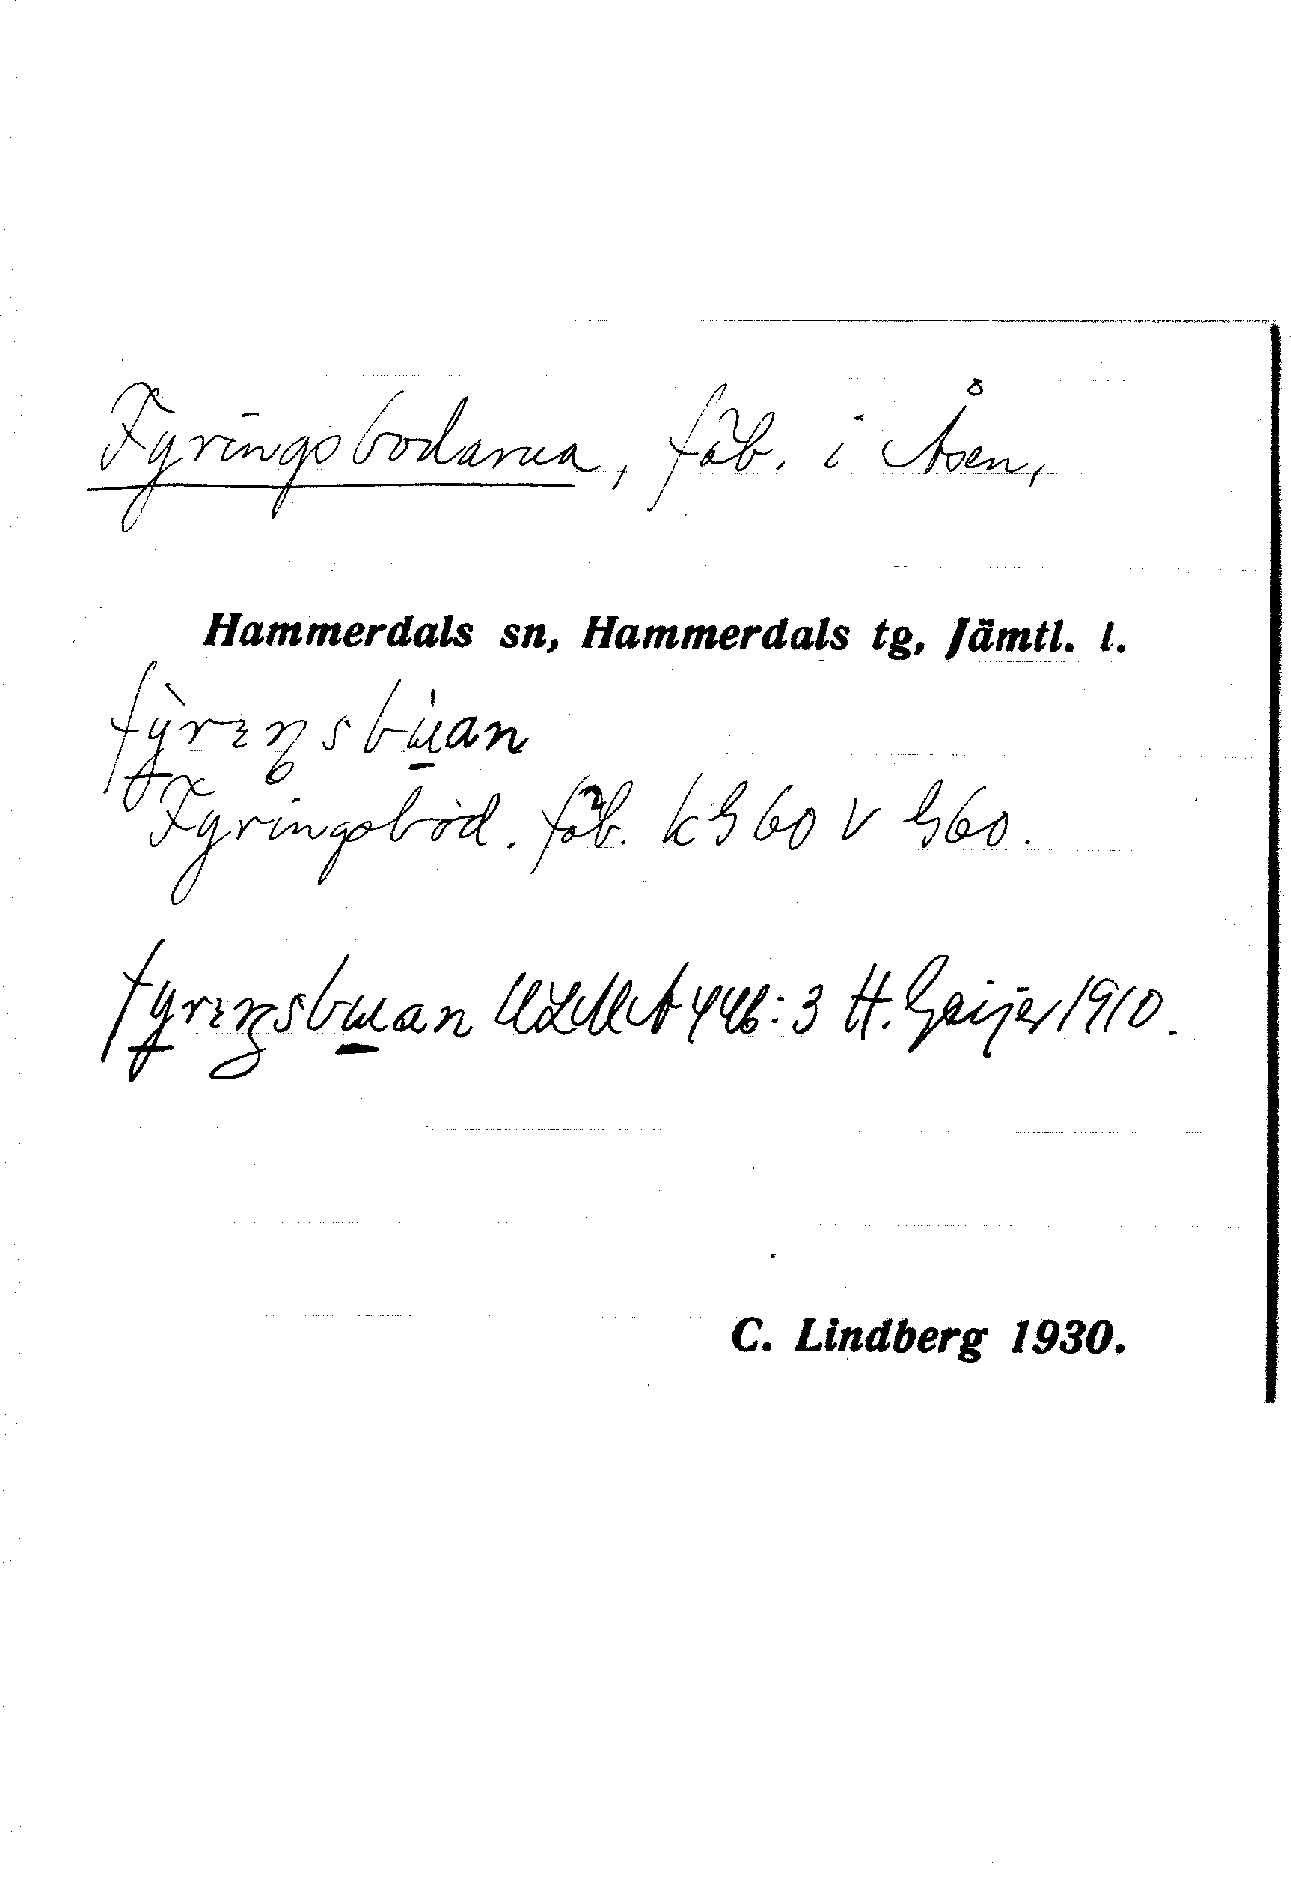 Fyringsbodarna, fäb. i Åsen,
Hammerdals sn, Hammerdals tg, Jämtl. l.
fỳ̲rɪŋsbu̲̍an
Fyringsbod. fäb. k G 60 v G60.
fy̲rɪŋsbu̲an ULMA 446:3 H. Geijer 1910.
C. Lindberg 1930.